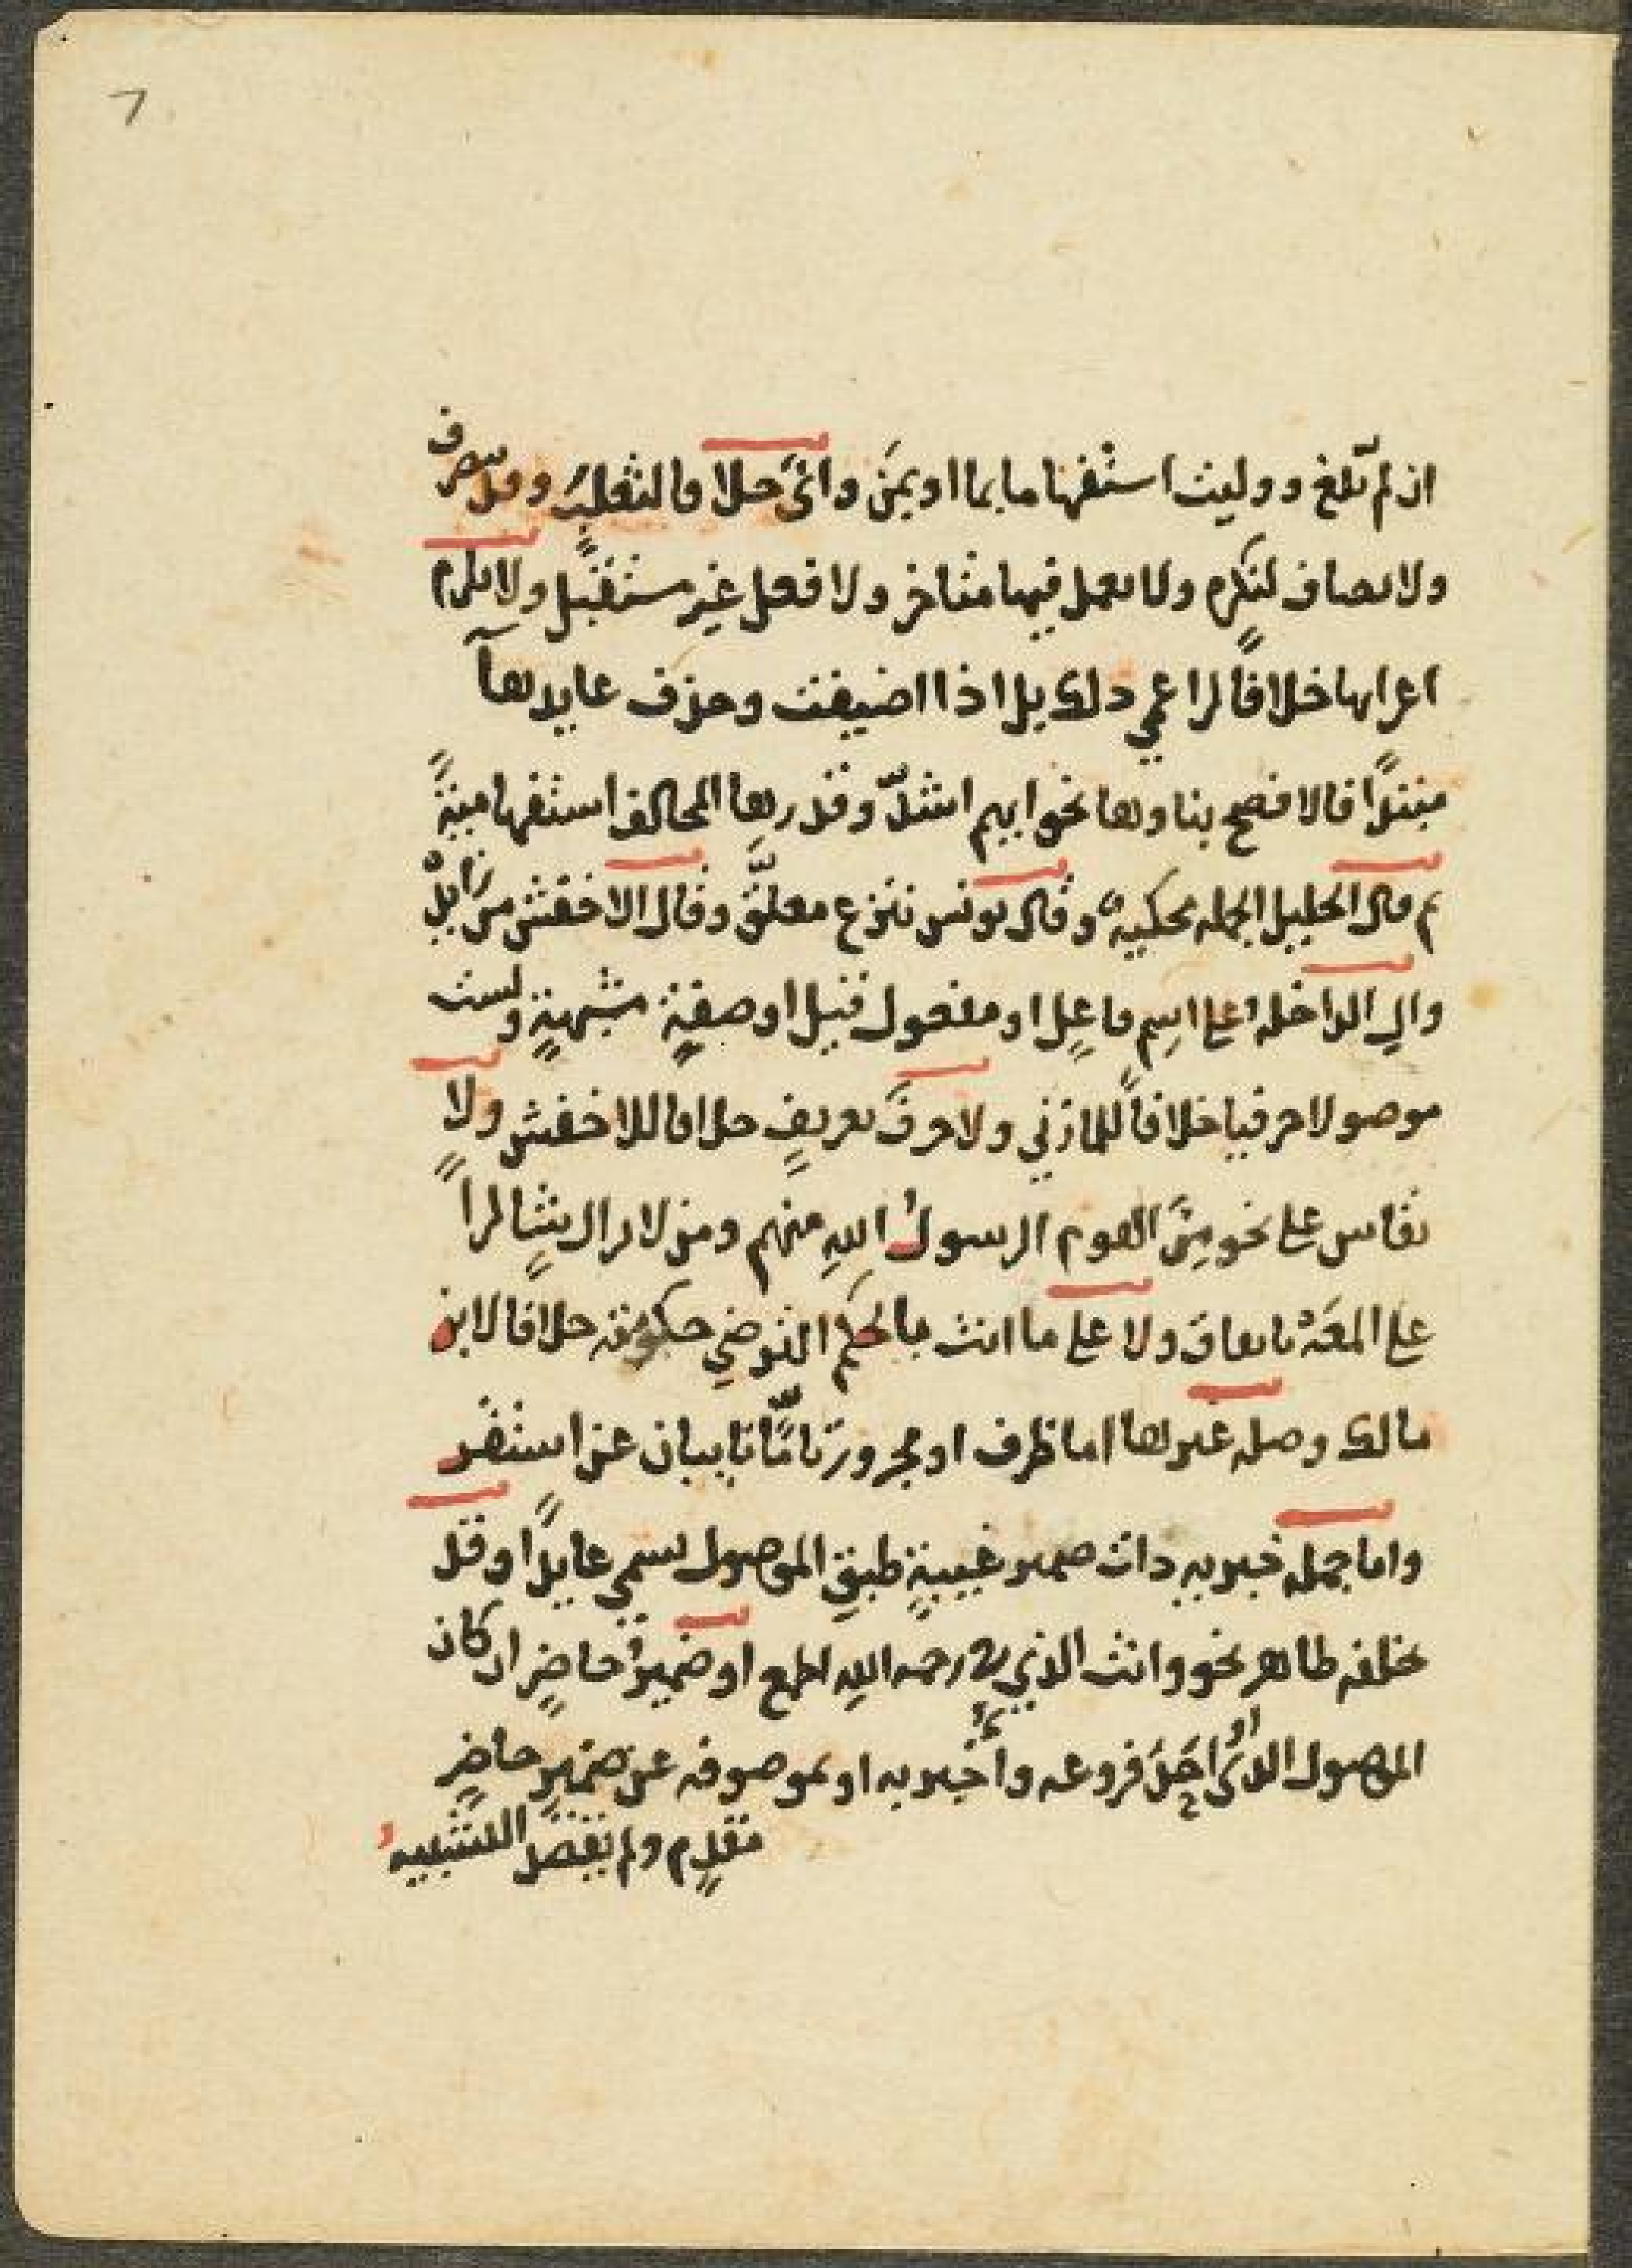 7
ان لم تلغ ووليت استفهاما بما او بمن واىّ خلافا لثعلب وقد تصرف
ولا تضاف لنكره ولا يعمل فيها متاخر ولا فعل غير مستقبل ولا يلزم
اعرابها خلافا لزاعمي ذلك بل اذا اضيفت وحذف عايدها
مبتدأ فالافصح بناوها نحو ايهم اشدّ وقدرها المخالف استفهامية
ثم قال الخليل الجمله محكيه وقال يونس ننزع معلّق وقال الاخفش من زايدة
وال الداخله على اسم فاعل او مفعول قيل او صفة مشبهة وليست
موصولا حرفيا خلافا للمازني ولا حرف تعريف خلافا للاخفش ولا
يقاس على نحو من القوم الرسول الله منهم ومن لا يزال شاكرا
على المعه باتفاق ولا على ما انت بالحكم الترضي حكومته خلافا لابن
مالك وصلة غيرها اما ظرف او مجرور تامّان نايبان عن استقر
واما جمله خبريه ذات ضمير غيبة طبق الموصول يسمى عايدا وقد
يخلفه ظاهر نحو وانت الذي في رحمه الله اطمع او ضمير حاضر ان كان
الموصول الذى او احد فروعه واخبر به او بموصوفه عن ضمير حاضر
مقدم ولم يقصد التشبيه